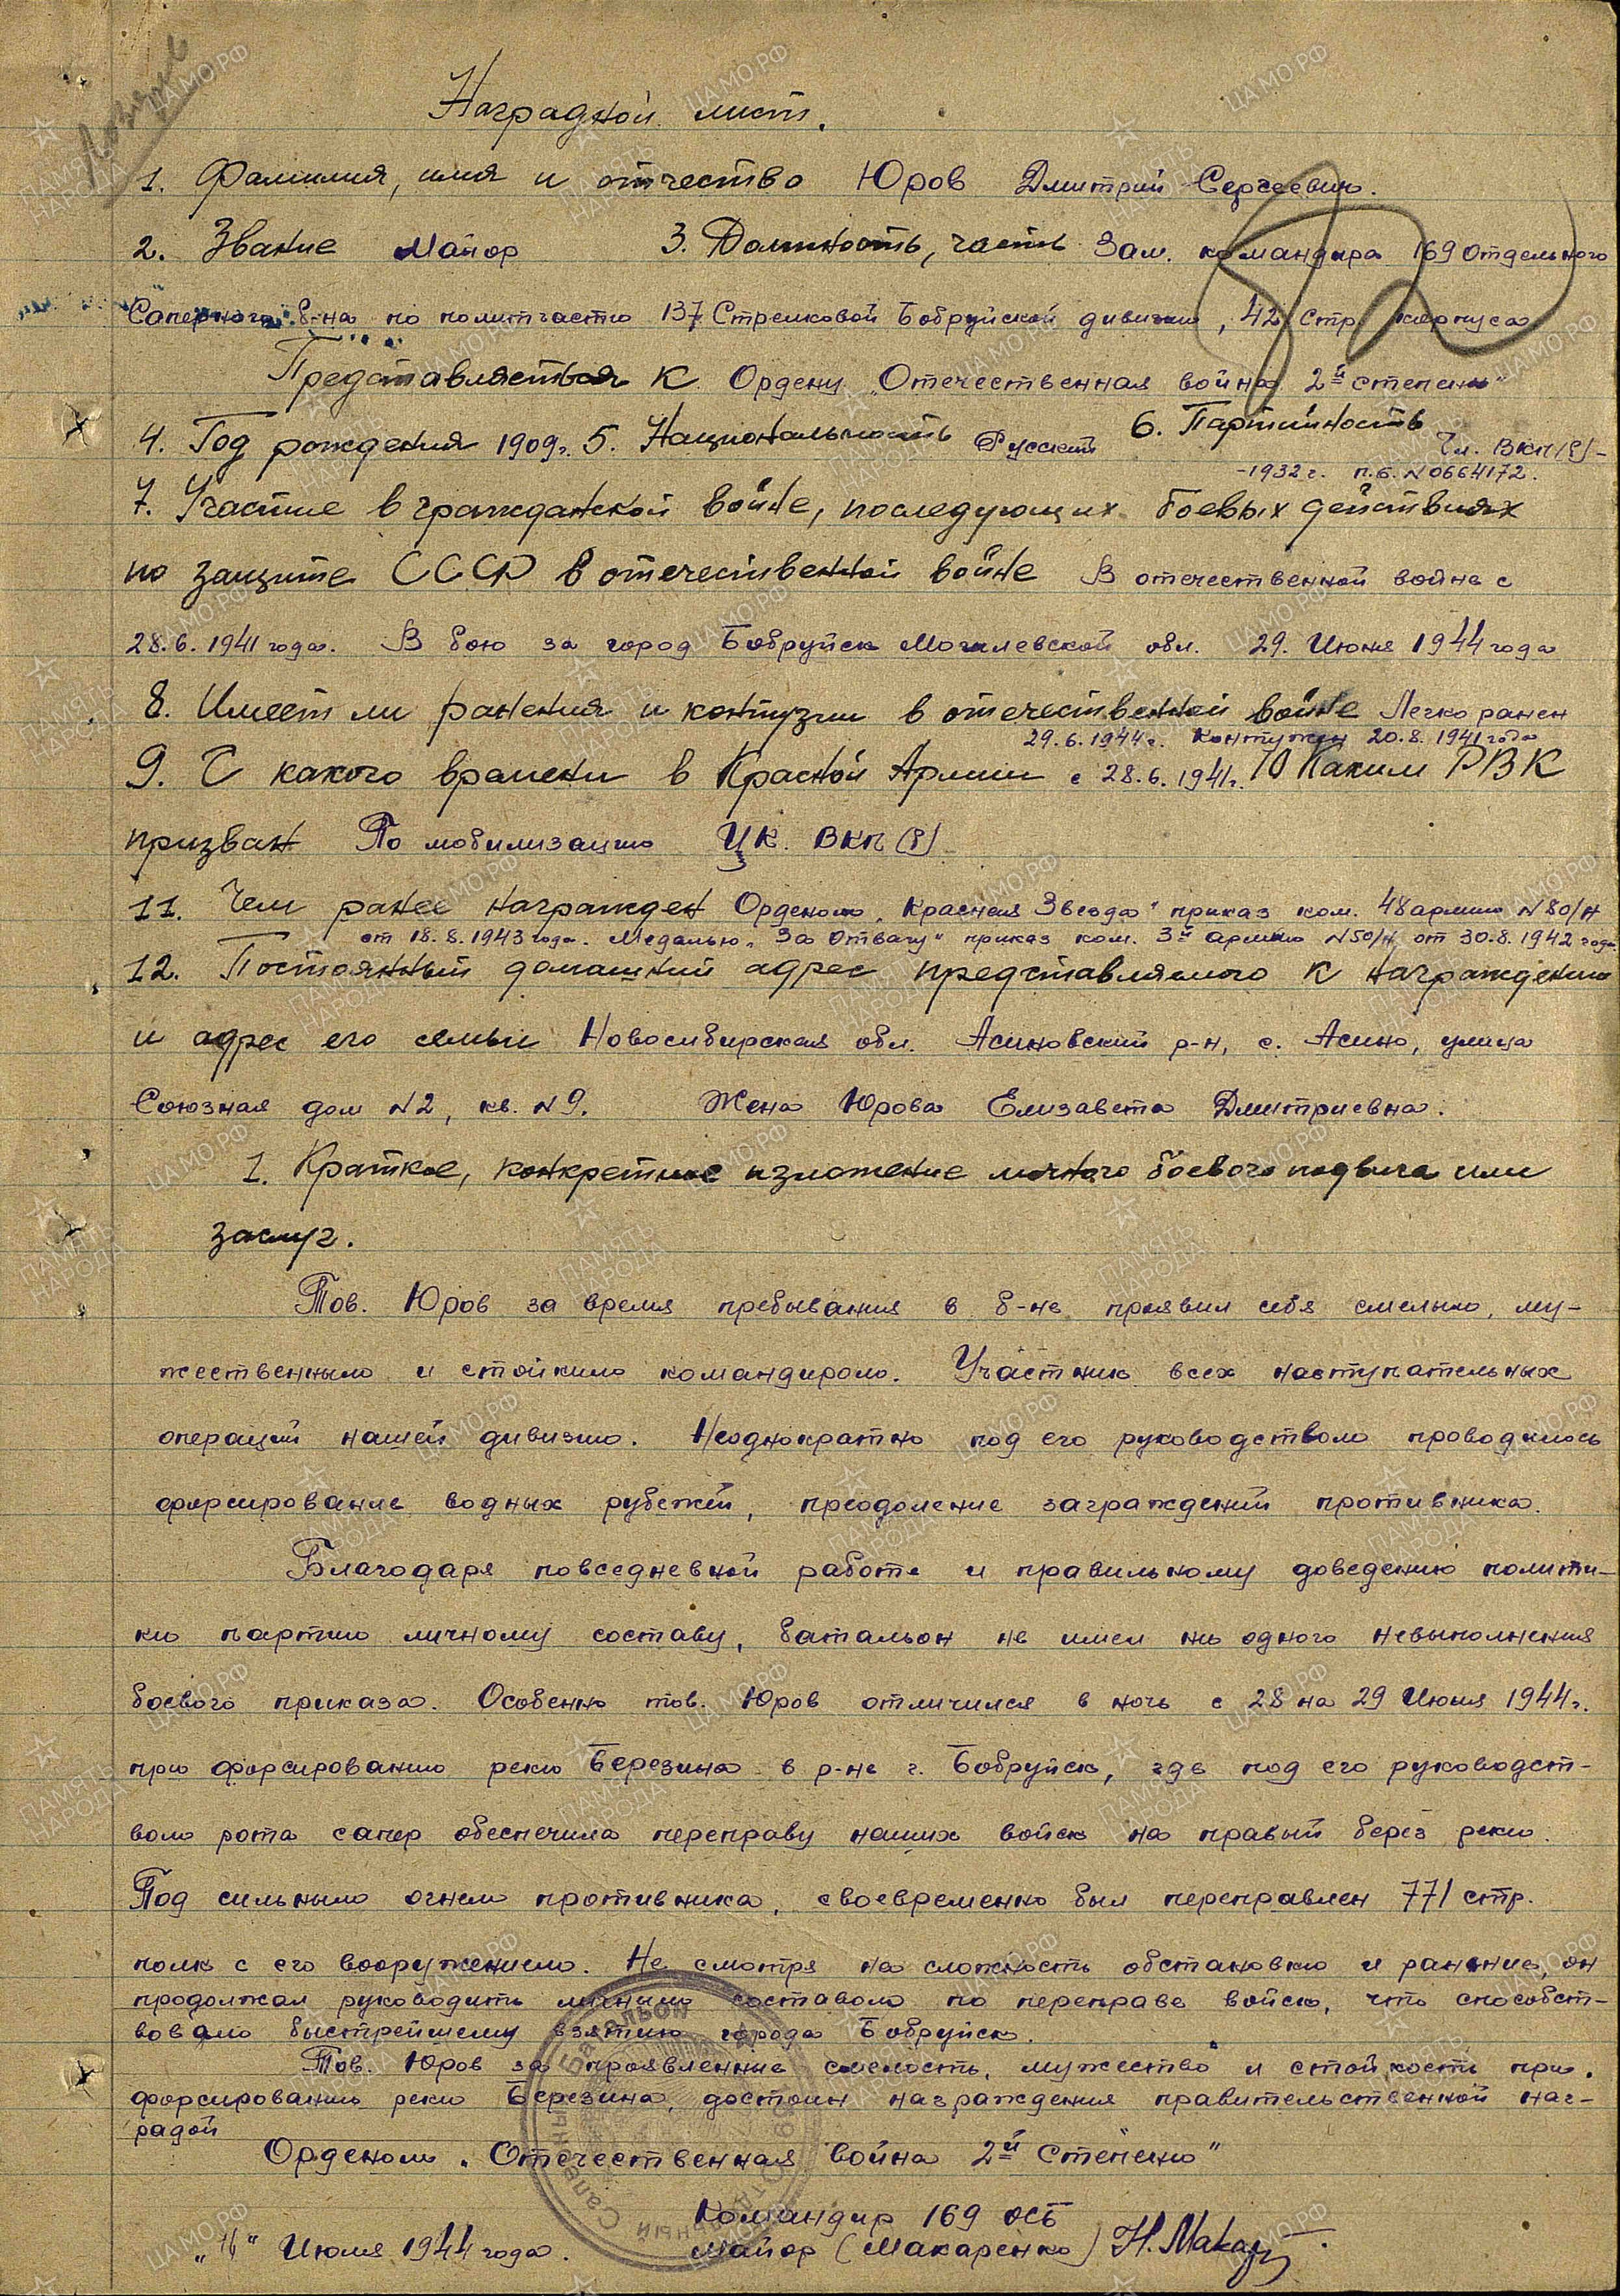 Наградной лист.
1. Фамилия, имя и отчество Юров Дмитрий Сергеевич.
2. Звание Майор 3. Должность, часть Зам. командира 169 Отдельного
Саперного б-на по политчасти 137 Стрелковой Бобруйской дивизии, 42 Стр. корпуса
Представляется к Ордену „Отечественная война 2й степени"
4. Год рождения 1909г. 5. Национальность Русский 6. Партийность Чл. ВКП(б)-
-1932г. п.б. N0664172.
7. Участие в гражданской войне, последующих боевых действиях
по защите СССР в отечественной войне В отечественной войне с
28.6.1941 года. В бою за город Бобруйск Могилевской обл. 29. Июня 1944 года
8. Имеет ли ранения и контузии в отечественной войне Легко ранен
29.6.1944г. Контужен 20.8.1941 года
9. С какого времени в Красной Армии с 28.6.1941г. 10 Каким РВК
призван По мобилизации ЦК. ВКП(б)
11. Чем ранее награжден Орденом „Красная Звезда" приказ ком. 48 армии N80/н
от 18.8.1943 года. Медалью „За Отвагу" приказ ком. 3й армии N50/н от 30.8.1942 года
12. Постоянный домашний адрес представляемого к награждению
и адрес его семьи Новосибирская обл. Асиновский р-н, с. Асино, улица
Союзная дом N2, кв. N9. Жена Юрова Елизавета Дмитриевна.
1. Краткое, конкретное изложение личного боевого подвига или
заслуг.
Тов. Юров за время пребывания в б-не проявил себя смелым, му-
жественным и стойким командиром. Участник всех наступательных
операций нашей дивизии. Неоднократно под его руководством проводились
форсирование водных рубежей, преодоление заграждений противника.
Благодаря повседневной работе и правильному доведению полити-
ки партии личному составу, батальон не имел ни одного невыполнения
боевого приказа. Особенно тов. Юров отличился в ночь с 28 на 29 Июня 1944г.
при форсировании реки Березина в р-не г. Бобруйск, где под его руководст-
вом рота сапер обеспечила переправу наших войск на правый берег реки.
Под сильным огнем противника, своевременно был переправлен 771 стр.
полк с его вооружением. Не смотря на сложность обстановки и ранение, он
продолжал руководить личным составом по переправе войск, что способст-
вовало быстрейшему взятию города Бобруйск.
Тов. Юров за проявленные смелость, мужество и стойкость при
форсировании реки Березина, достоин награждения правительственной наг-
радой
Орденом „Отечественная война 2й Степени"
Командир 169 ОСБ
„4" Июля 1944 года. Майор (Макаренко) Н. Макар